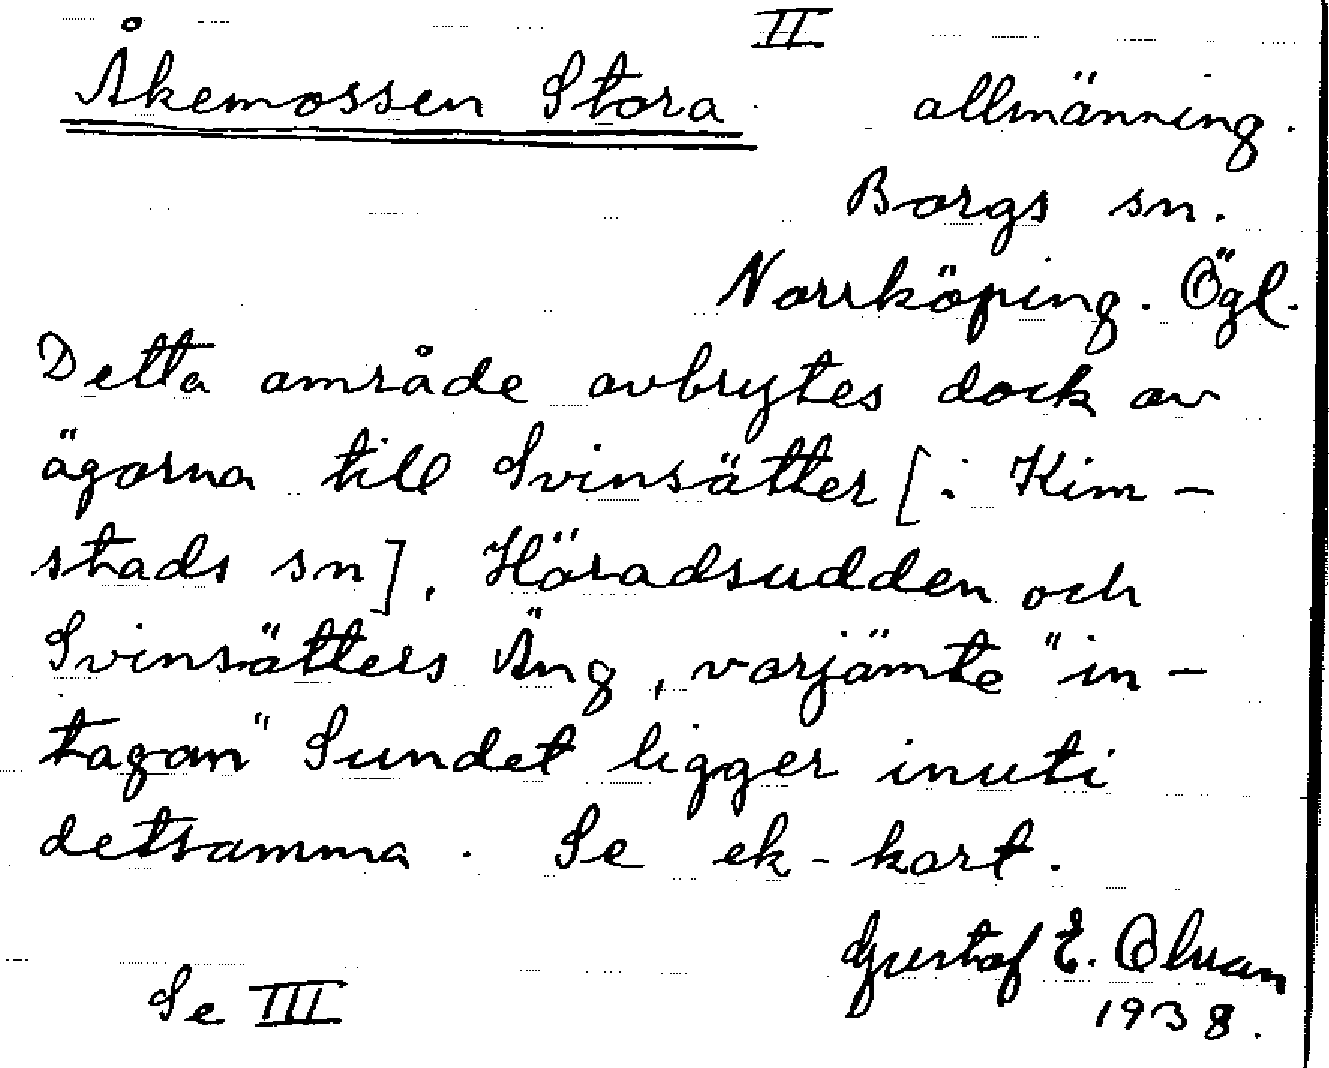 II
Åkemossen Stora allmänning.
Borgs sn.
Norrköping. Ögl.
Detta område avbrytes dock av
ägorna till Svinsätter [: Kim-
stads sn], Häradsudden och
Svinsätters Äng, varjämte "in-
tagan" Sundet ligger inuti
detsamma. Se ek-kart.
Gustaf E. Olsson
1938.
Se III